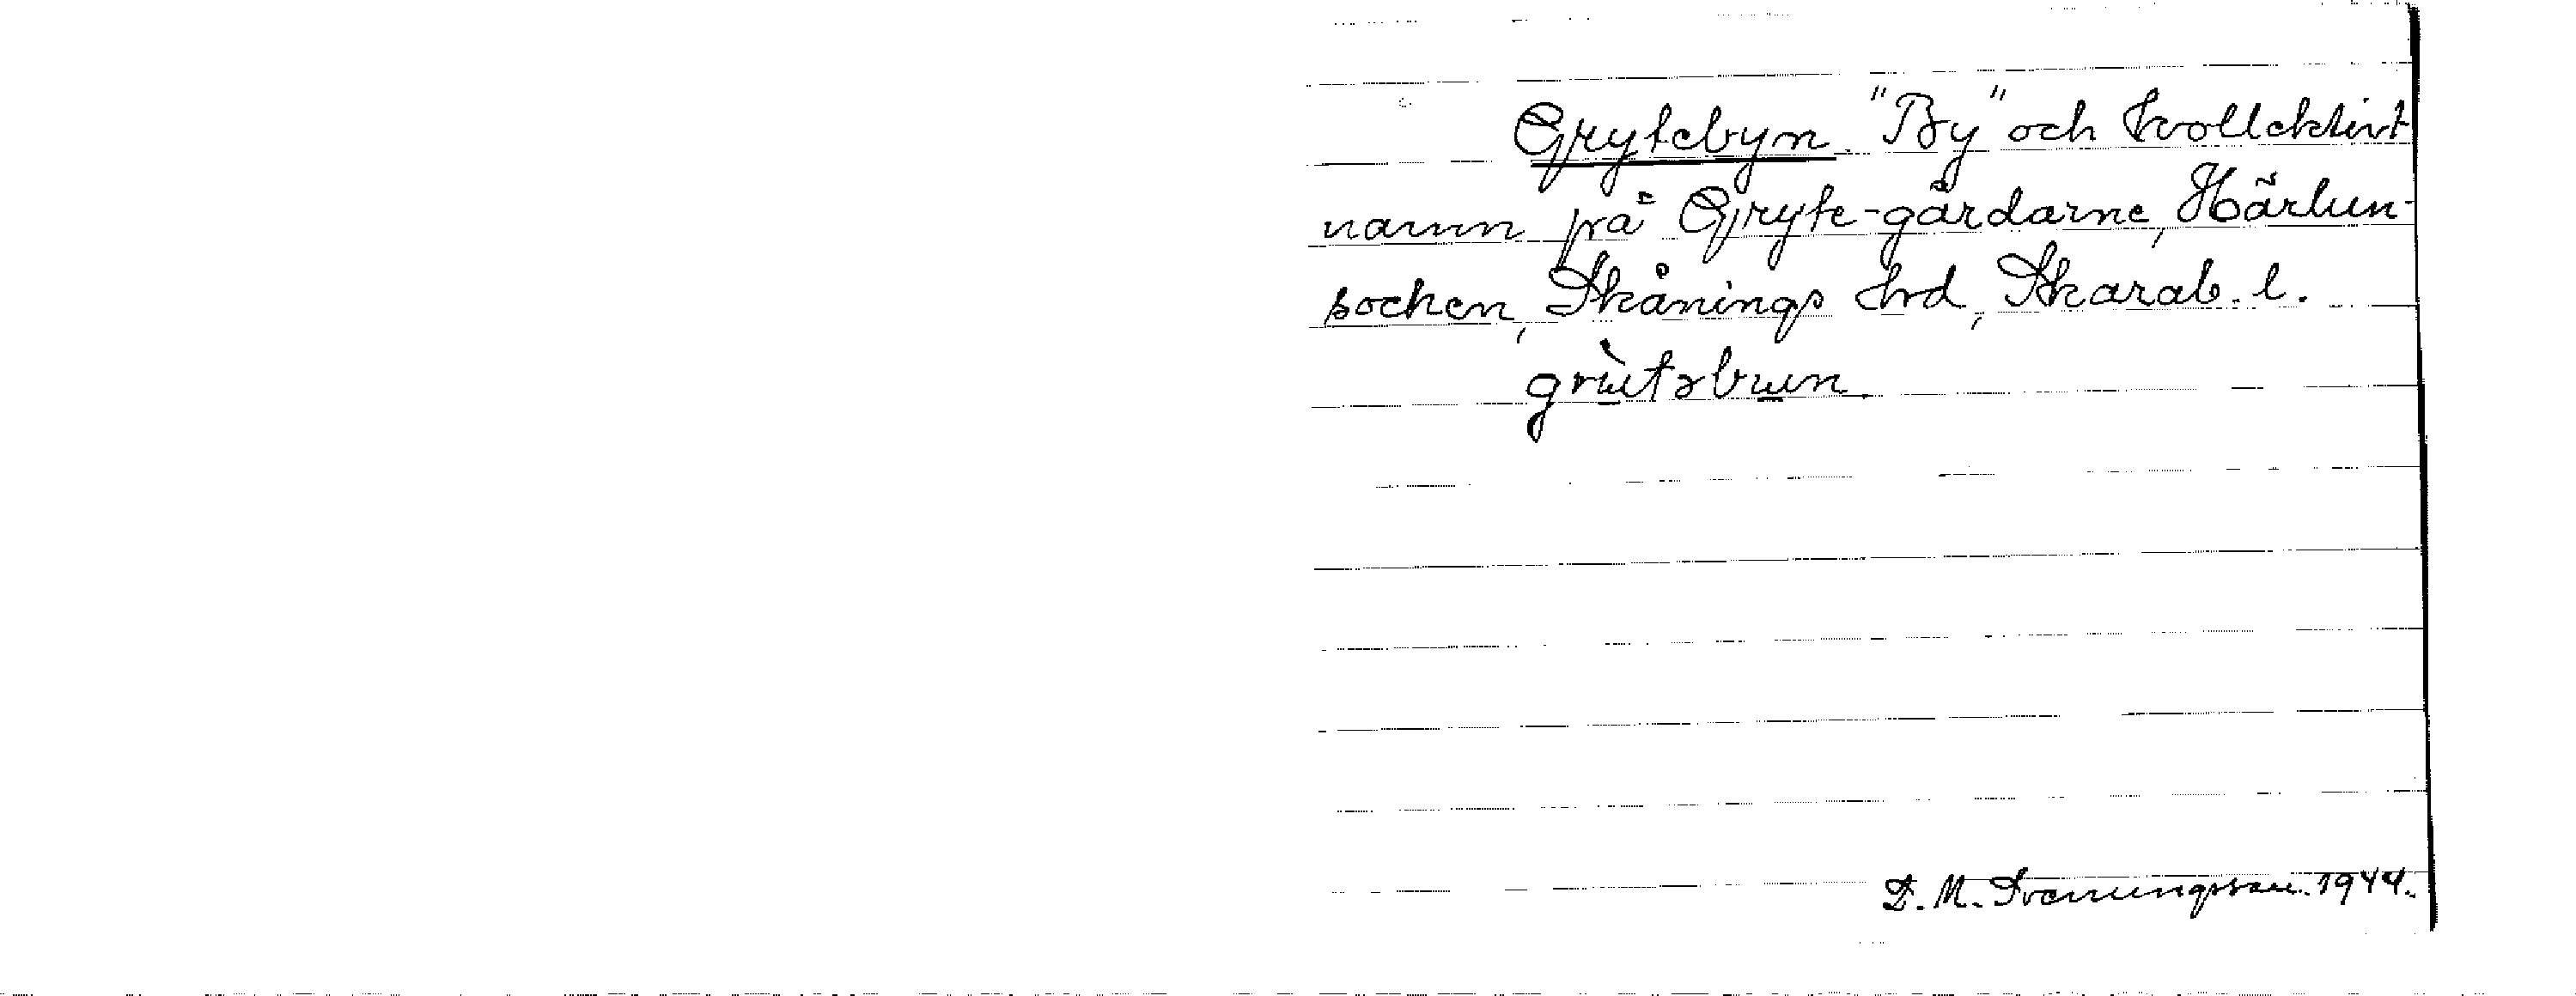 Grytebyn. "By" och kollektivt
namn på Gryte-gårdarne, Härlun-
socken, Skånings hrd, Skarab. l.
grùtəbun.
D. M. Svenungsson. 1944.